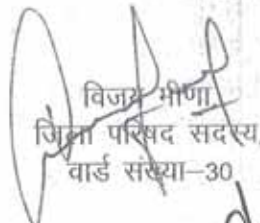 विजय मीणा
जिला परिषद सदस्य,
वार्ड संख्या–30